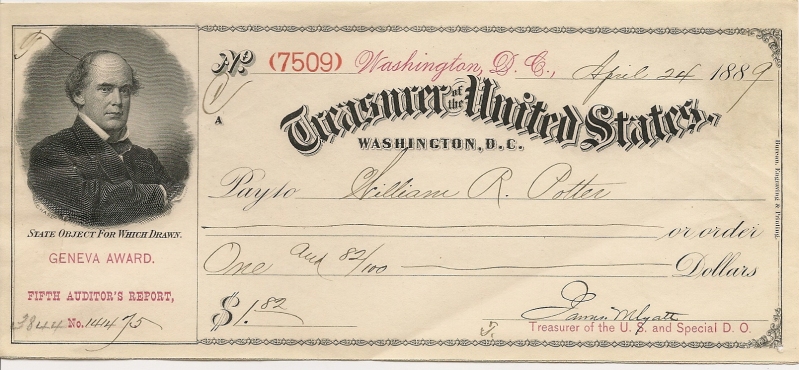 No (7509) Washington, D. C., April 24 1889
A
Treasurer of the United States,
WASHINGTON, D.C.
Pay to William R. Potter
or order
One and 82/100 Dollars
$1.82
Treasurer of the U.S. and Special D. O.
Bureau, Engraving & Printing.
STATE OBJECT FOR WHICH DRAWN.
GENEVA AWARD.
FIFTH AUDITOR'S REPORT,
No.